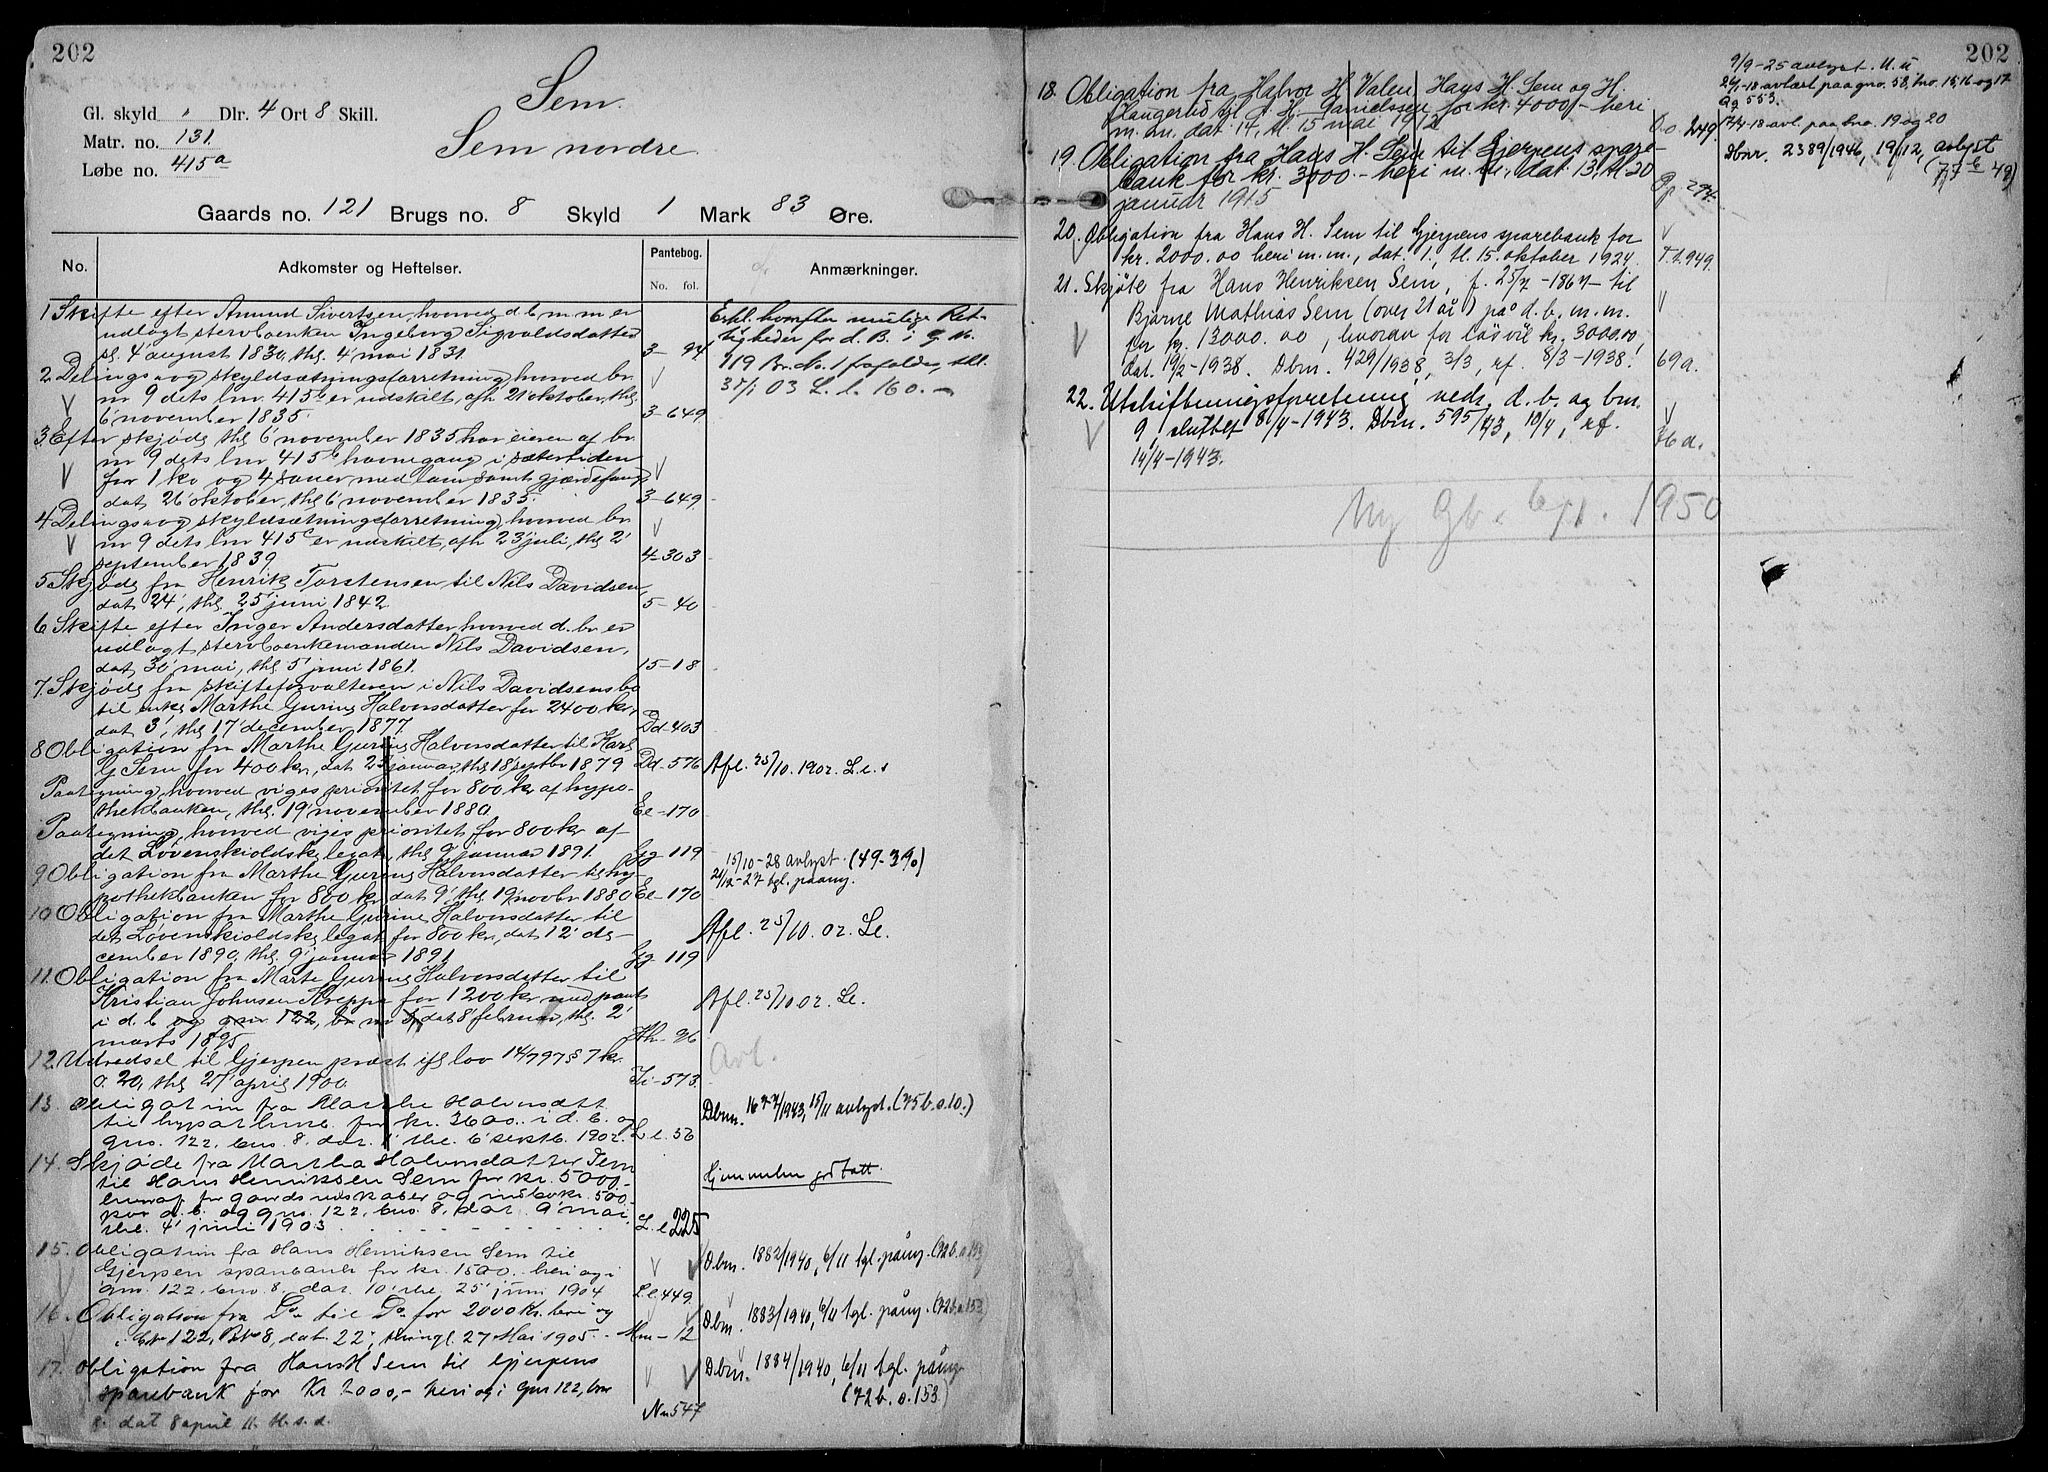 202
Sem.
Sem nordre
Gl. skyld " Dlr. 4 Ort 8 Skill.
Matr. no. 131.
Løbe no. 415a
Gaards no. 121 Brugs no. 8 Skyld 1 Mark 83 Øre.
No. Adkomster og Heftelser. Pantebog. No. fol. Anmærkninger.
1 Skifte efter Amund Sivertsen, hvorved d. b. m. m. er
udlagt stervboenken Ingeborg Sigvaldsdatter
4' august 1830, thg. 4' mai 1831. 3 – 94
Erkl. hvorefter mulige Ret-
tigheder for d. B. i g. No.
119 Br. No. 1 frafaldes, thl.
03 L. l. 160. –
2 Delings- og skyldsætningsforretning, hvorved br.
nr 9 dets lnr. 415b er udskilt, afh. 21' oktober, thg.
6' november 1835. 3 – 649
3 Efter skjøde thg. 6' november 1835 har eieren af br.
nr 9 dets lnr 415b havnegang i sætertiden
for 1 ko og 4 sauer med lam samt gjærdefang,
dat. 26' oktober, thg. 6' november 1835. 3 – 649
4 Delings- og skyldsætningsforretning, hvorved br.
nr 9 dets lnr 415c er udskilt, afh. 23' juli, thg. 2'
september 1839. 4 – 303
5 Skjøde fra Henrik Torstensen til Nils Davidsen,
dat. 24', thg. 25' juni 1842. 5 – 40
6 Skifte efter Inger Andersdatter hvorved d. br. er
udlagt stervboenkemanden Nils Davidsen,
dat. 30' mai, thg. 5' juni 1861. 15 – 18
7. Skjøde fra skifteforvalteren i Nils Davidsens bo
til enke Marthe Gurine Halvorsdatter for 2400 kr.,
dat. 3', thg. 17' december 1877. Dd – 403
8 Obligation fra Marthe Gurine Halvorsdatter til Karl
G Sem for 400 kr., dat. 23' januar, thg. 18 septbr 1879 Dd – 576 Afl. 25/10. 1902. L. l.
Paategning, hvorved viges prioritet for 800 kr. af hypo-
thekbanken, thg. 19' november 1880. Ee – 170
Paategning, hvorved viges prioritet for 800 kr. af
det Løvenskioldske legat, thg. 9' januar 1891. Gg – 119
9 Obligation fra Marthe Gurine Halvorsdatter til hy-
pothekbanken for 800 kr., dat. 9', thg. 19' novbr 1880 Ee – 170
15/10-28 avlyst. (49-390)
21/12-27 tgl. paateg.
10 Obligation fra Marthe Gurine Halvorsdatter til
det Løvenskioldske legat for 800 kr., dat. 12' de-
cember 1890, thg. 9' januar 1891. Gg – 119
Afl. 25/10. 02. Ll.
11. Obligation fra Marte Gurine Halvorsdatter til
Kristian Johnsen Kreppa for 1200 kr. med pant
i d. b. og gnr. 122, br. nr 8, dat. 8' februar, thg. 2'
marts 1895. Hh – 26
Afl. 25/10 02. Ll.
12. Udredsel til Gjerpen præst ifl. lov 14/7 97 § 7 kr.
0.20, thg. 27' april 1900. Ii – 573.
Avl.
13. Obligation fra Marthe Halvorsdatt.
til hyp. for kr. 3600.. i d. b. og
gno. 122, bno. 8. dat. 1' thl. 6' septb. 1902. L l. 56
Dbnr. 1677/1943, 15/11 avlyst. (75 b. s. 10.)
14. Skjøde fra Martha Halvorsdatter Sem
til Hans Henriksen Sem for kr. 5000.-
hvoraf for gaardsredskaber og indbo kr. 500.-
paa d. b. og gno. 122, bno. 8. dat. 9' mai
thl. 4' juni 1903. L. l 225
Hjemmelen godtatt.
15. Obligation fra Hans Henriksen Sem til
Gjerpen sparebank for kr. 1500.. heri og i
gno. 122, bno. 8. dat. 10' thl. 25' juni 1904 Ll. 449
Dbnr. 1882/1940, 6/11 tgl. påteg. (72 b. s. 153)
16. Obligation fra Do til Do for 2000 Kr. heri og
i Gno 122, Bno 8, dat. 22', thingl. 27 Mai 1905. Mm – 12
Dbnr. 1883/1940, 6/11 tgl. påteg. (72 b. s. 153)
17. Obligation fra Hans H Sem til Gjerpens
sparebank for Kr 2000,- heri og i gnr 122, bnr
8. dat 8 april 11. th. s. d. Nn 547
Dbnr. 1884/1940, 6/11 tgl. påteg.
(72 b. s. 153.)
202
18. Obligation fra Halvor H. Valen, Hans H. Sem og H.
Haugerød til A. H. Danielssen for kr. 4000,- heri
m. m. dat. 14, tl. 15 mai 1912 Oo. 249
9/9-25 avlyst. U. u
avlæst paa gno. 58, bno. 15, 16 og 17
Qq 553.
avl. paa bno. 19 og 20
19. Obligation fra Hans H. Sem til Gjerpens spare-
bank for kr. 3000.- heri m. m., dat. 13, tl. 20
januar 1915 Pp 294.
Dbnr. 2389/1946, 19/12, avlyst
(77 b 49)
20. Obligation fra Hans H. Sem til Gjerpens sparebank for
kr. 2000.00 heri m. m., dat. 1., tl. 15. oktober 1924. T.t. 949.
21. Skjøte fra Hans Henriksen Sem, f. 25/7 -1867 til
Bjarne Mathias Sem (over 21 år) på d. b. m. m.
for kr. 13000.00, hvorav for løsøre kr. 3000.00,
dat. 19/2 -1938. Dbnr. 429/1938, 3/3, rf. 8/3-1938. 69a.
22. Utskiftningsforretning vedr. d. b. og bnr.
9, sluttet 8/4-1943. Dbnr. 595/43, 10/4, rf.
14/4-1943. 76 a.
Ny Gb. 6/1. 1950